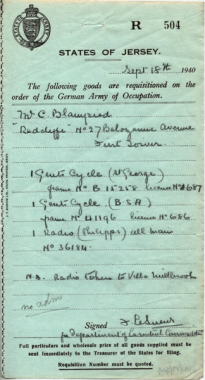 R 504
STATES OF JERSEY.
Sept 18th 1940
The following goods are requisitioned on the
order of the German Army of Occupation.
Mr C. Blampied
Radcliffe No 27 Avenue
First Tower
1 Gents Cycle (St George)
frame No B 15258 licence No 4687
1 Gents Cycle (B.S.A)
frame No 41196 licence No 686
1 Radio (Philipps) all main
No 36184
N.B. Radio taken to Villa Millbrook
no adm
Signed
for Department of Essential Commodities
Full particulars and wholesale price of all goods supplied must be
sent immediately to the Treasurer of the States for filing.
Requisition Number must be quoted.